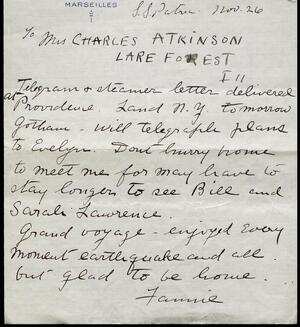 MARSEILLES
S.S. Patria. Nov. 26
To Mrs CHARLES ATKINSON
LAKE FOREST
Ill
Telegram & steamer letter delivered
at Providence. Land N.Y. tomorrow
Gotham - will telegraph plans
to Evelyn. Dont hurry home
to meet me for may have to
stay longer to see Bill and
Sarah Lawrence.
Grand voyage - enjoyed every
moment earthquake and all.
but glad to be home.
Fannie